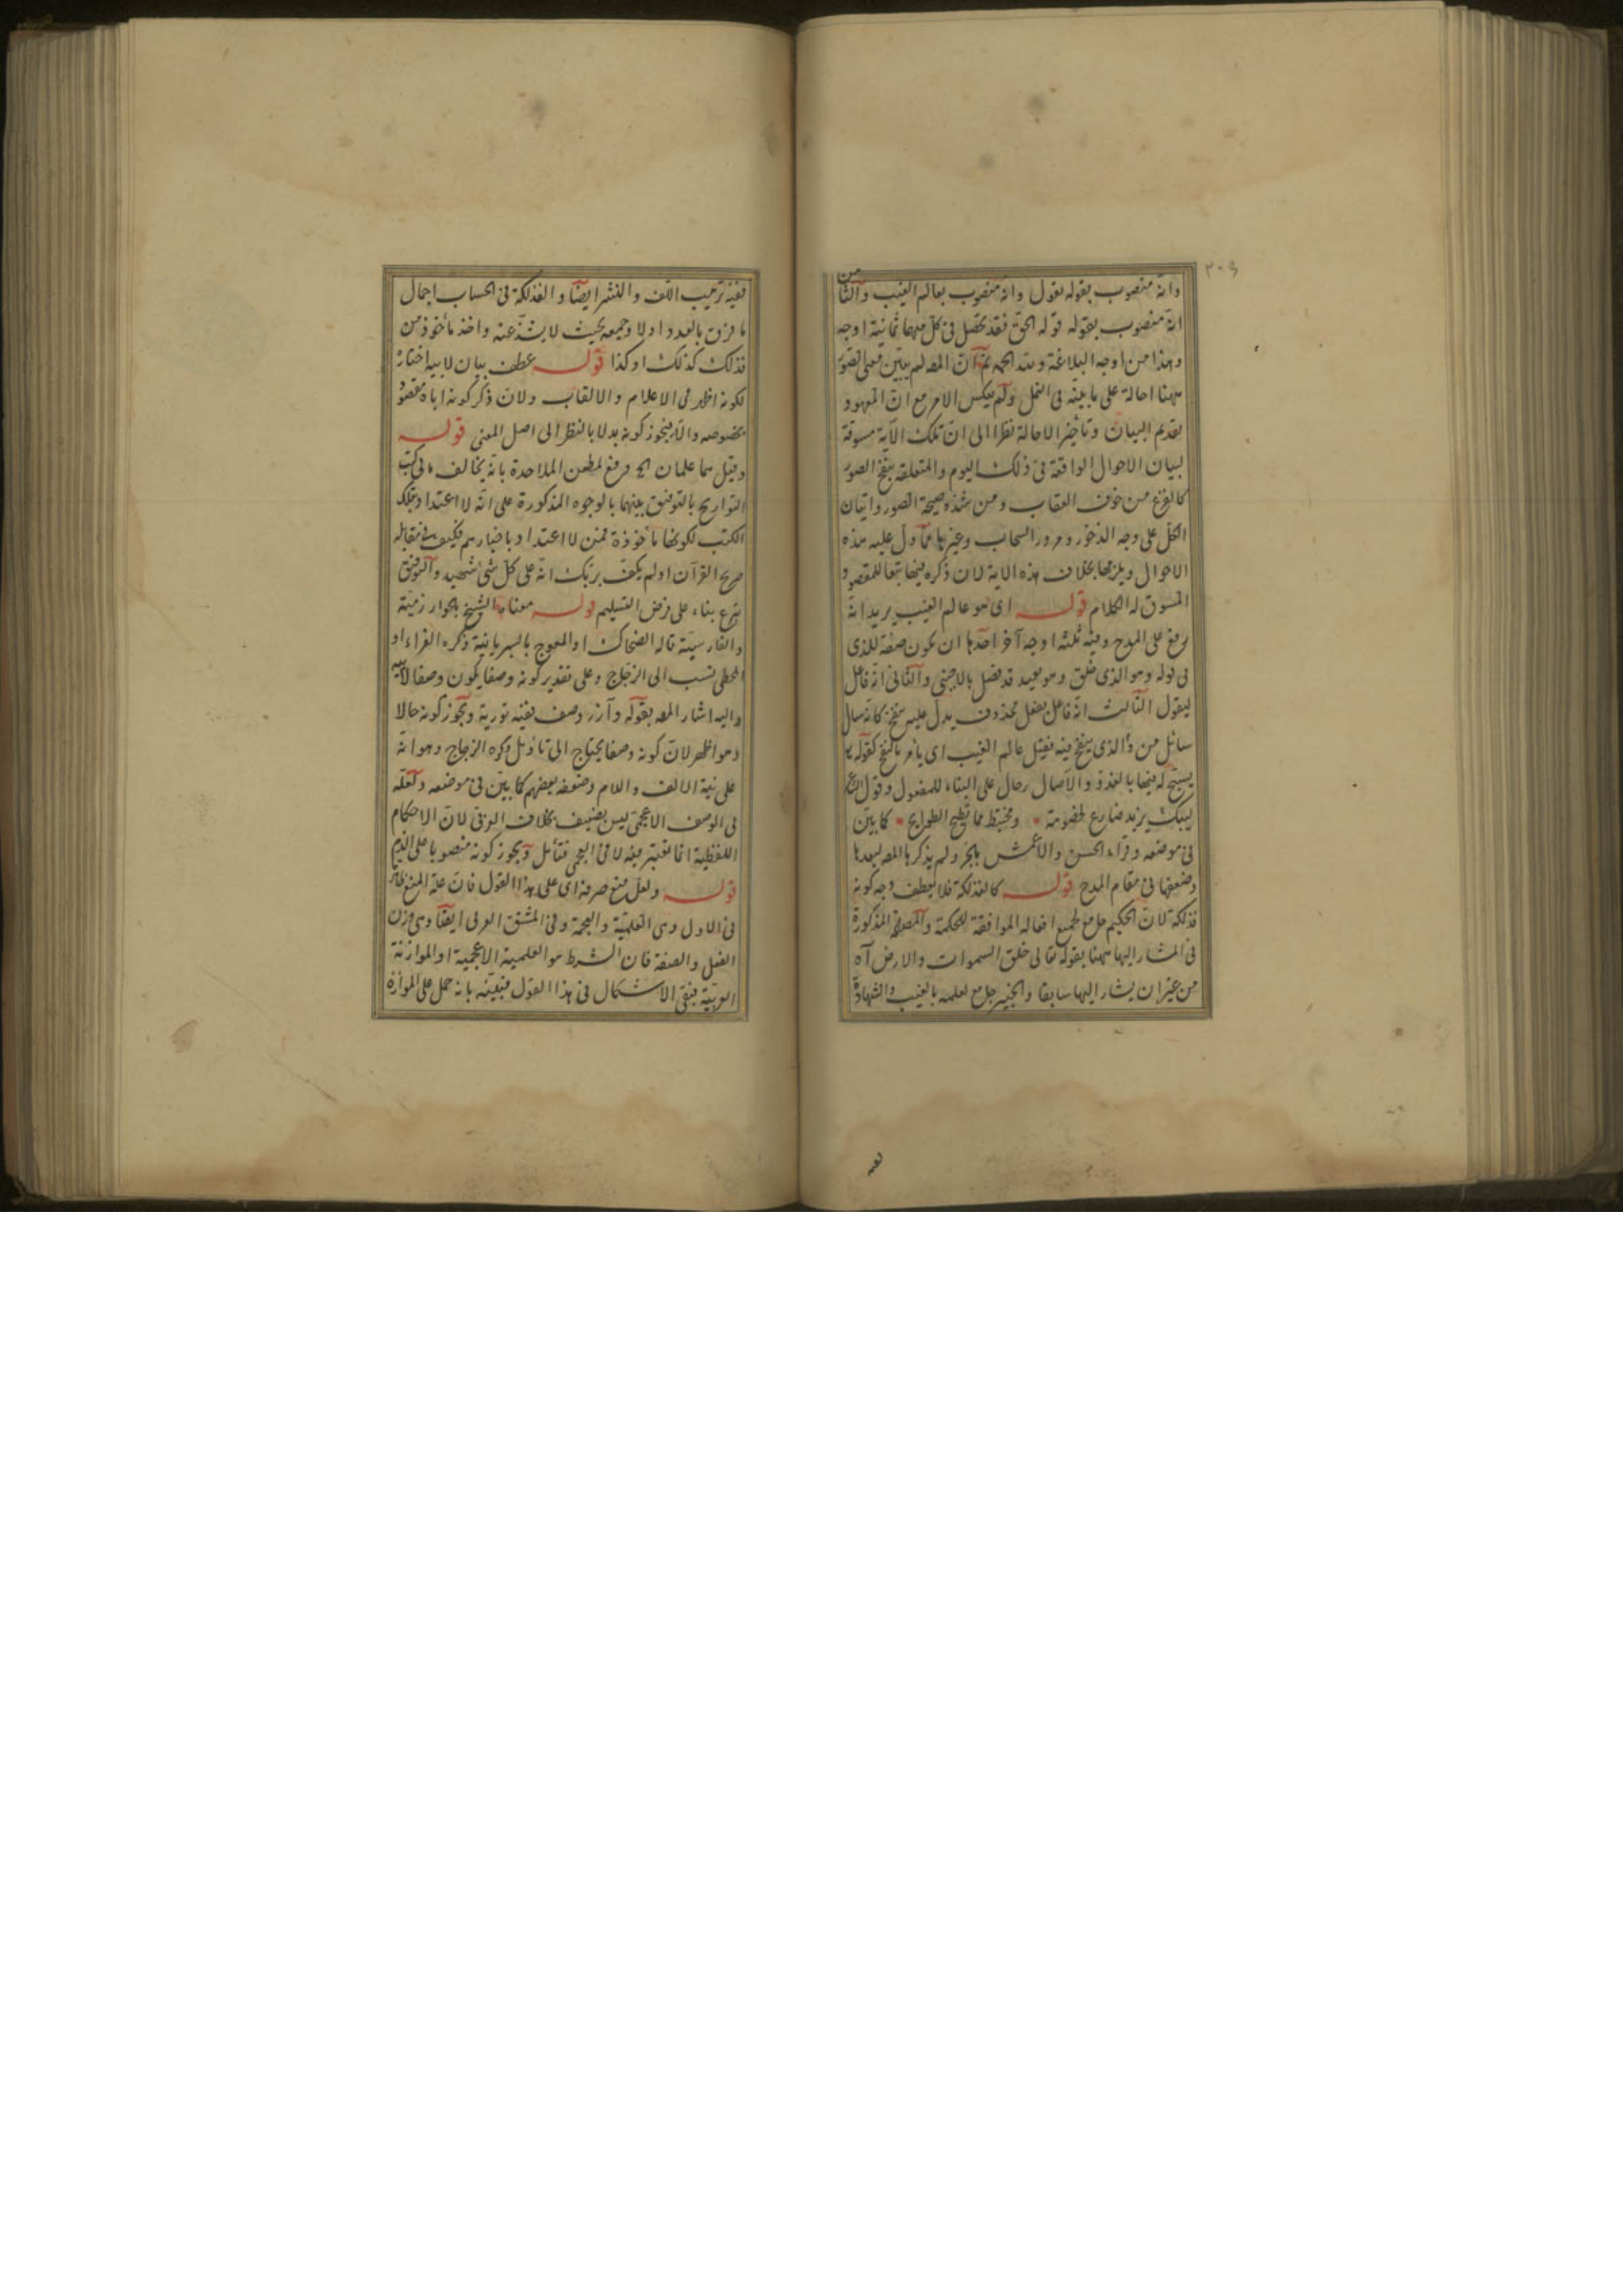 ٢٠٩
وانه منصوب بقوله يقول وانه منصوب بعالم الغيب والثامن
انه منصوب بقوله قوله الحق فقد تحصل فى كل منهما ثمانية اوجه
وهذا من اوجه البلاغة ولله الحمد ثم ان المص لم يبين معنى الصور
ههنا احالة على ما بينه فى النمل ولم يعكس الامر مع ان المعهود
تقديم البيان وتأخير الاحالة نظرا الى ان تلك الآية مسوقة
لبيان الاحوال الواقعة فى ذلك اليوم والمتعلقة بنفخ الصور
كالفزع من خوف العقاب ومن شدة صيحة الصور واتيان
الكل على وجه الدخور ومرور السحاب وغيرها مما دل عليه هذه
الاحوال ويلزمها بخلاف هذه الآية لان ذكره فيها تبعا للمقصود
المسوق له الكلام قوله اى هو عالم الغيب يريد انه
رفع على المدح وفيه ثلثة اوجه آخر احدها ان يكون صفة للذى
فى قوله وهو الذى خلق وهو بعيد قد فصل بالاجنبى والثانى انه فاعل
ليقول الثالث انه فاعل بفعل محذوف يدل عليه ينفخ كانه سال
سائل من ذا الذى ينفخ فيه فقيل عالم الغيب اى يأمر بالنفخ كقوله
يسبح له فيها بالغدو والآصال رجال على البناء للمفعول وقول الشاعر
ليبك يزيد ضارع لخصومة * ومختبط مما تطيح الطوايح * كما بين
فى موضعه وقراء الحسن والاعمش بالجر ولم يذكرها المص لبعدها
وضعفها فى مقام المدح قوله كالفذلكة فلا يعطف وجه كونه
فذلكة لان الحكيم جامع لجميع افعاله الموافقة للحكمة والمصلحة المذكورة
فى المشار اليها ههنا بقوله تعالى خلق السموات والارض آه
من غير ان يشار اليها سابقا والخبير جامع لعلمه بالغيب والشهادة
ففيه
ففيه ترتيب اللف والنشر ايضا والفذلكة فى الحساب اجمال
ما فرق بالعدد اولا وجمعه بحيث لا يشذ عنه واخذ مأخوذ من
فذلك كذلك او كذا قوله عطف بيان لابيه اختاره
لكونه اظهر فى الاعلام والالقاب ولان ذكر كونه اباه مقصود
بخصوصه والا فيجوز كونه بدلا بالنظر الى اصل المعنى قوله
وقيل هما علمان الخ دفع لطعن الملاحدة بانه يخالف ما فى كتب
التواريخ بالتوفيق بينهما بالوجوه المذكورة على انه لا اعتداد بتلك
الكتب لكونها مأخوذة ممن لا اعتداد باخبارهم فكيف فى مقابلة
صريح القرآن اولم يكف بربك انه على كل شئ شهيد والتوفيق
تبرع بناء على فرض التسليم قوله معناه الشيخ بالخوارزمية
والفارسية قاله الضحاك او المعوج بالسريانية ذكره الفراء او
المخطى نسب الى الزجاج وعلى تقدير كونه وصفا يكون وصفا لابيه
واليه اشار المص بقوله وآزر وصف ففيه تورية ويجوز كونه حالا
وهو اظهر لان كونه وصفا يحتاج الى تأويل ذكره الزجاج وهو انه
على نية الالف واللام وضعفه بعضهم كما بين فى موضعه ولعله
فى الوصف الاعجمى ليس بضعيف بخلاف العربى لان الاحكام
اللفظية انما تعتبر فيه لا فى العجمى فتأمل ويجوز كونه منصوبا على الذم
قوله ولعل منع صرفه اى على هذا القول فان علة المنع ظاهرة
فى الاول وهى العلمية والعجمة وفى المشتق العربى ايضا وهى وزن
الفعل والصفة فان الشرط هو العلمية الاعجمية او الموازنة
العربية فبقى الاشكال فى هذا القول فبينه بانه حمل على الموازنة